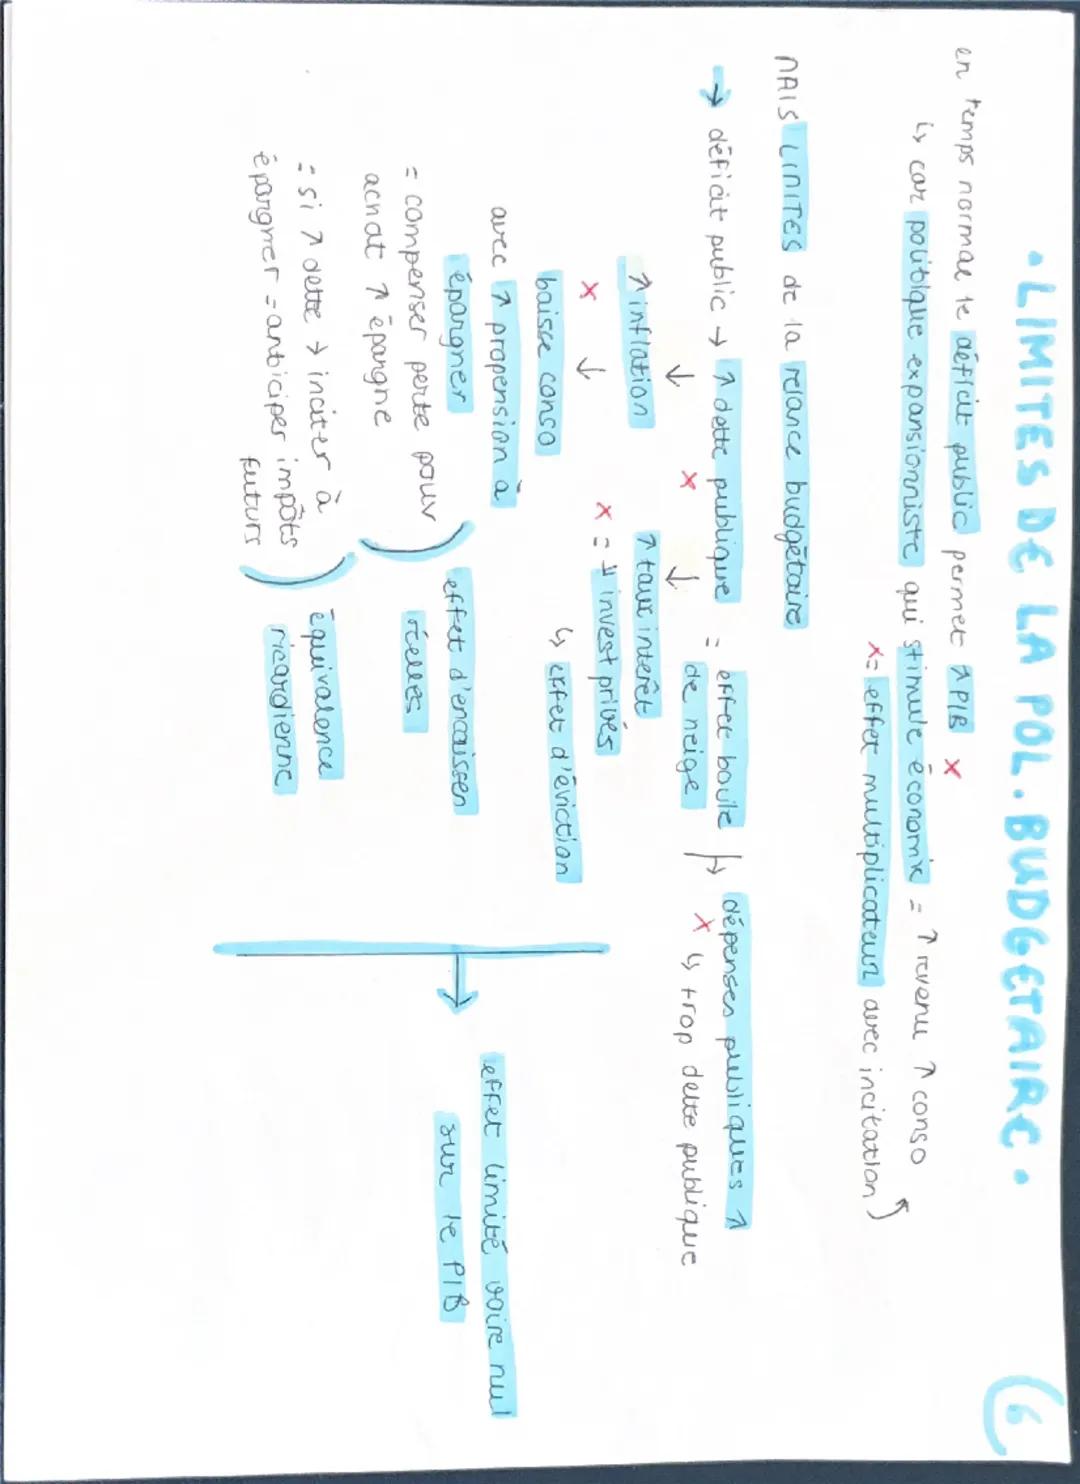 • LIMITES DE LA POL. BUDGETAIRE •
6
en temps normal le déficit public permet ↗ PIB x
↳ car politique expansionniste qui stimule économie = ↗ revenu ↗ conso
x = effet multiplicateur avec incitation
MAIS LIMITES de la relance budgétaire
→ déficit public → ↗ dette publique = effet boule de neige ↦ dépenses publiques ↗
x ↳ trop dette publique
↓ x ↓
↗ inflation ↗ taux intérêt
x ↓ x = ↓ invest privés
baisse conso ↳ effet d'éviction
avec ↗ propension à
épargner
= compenser perte pouv
achat ↗ épargne
effet d'encaisses
réelles
= si ↗ dette → inciter à
épargner = anticiper impôts
futurs
équivalence
ricardienne
→ effet limité voire nul
sur le PIB